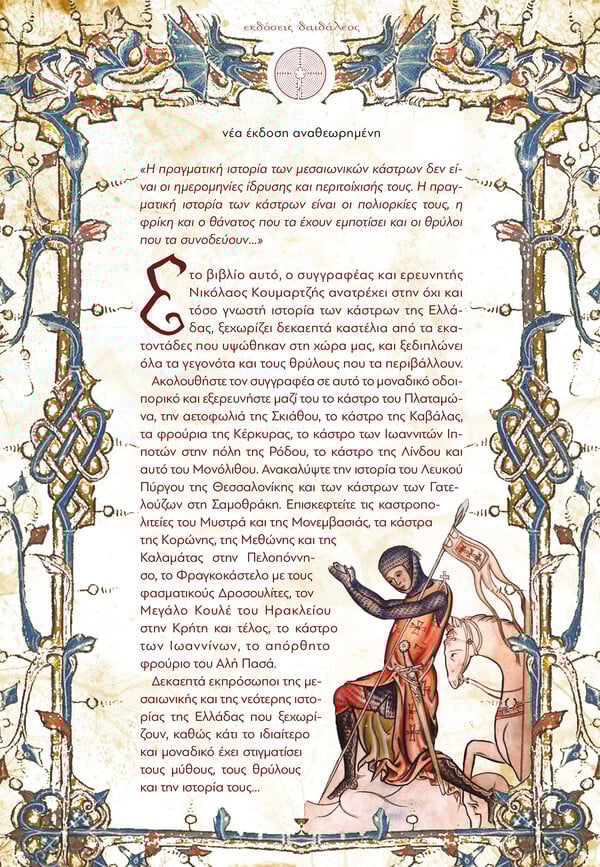 εκδόσεις δαιδάλεος
νέα έκδοση αναθεωρημένη
«Η πραγματική ιστορία των μεσαιωνικών κάστρων δεν εί-
ναι οι ημερομηνίες ίδρυσης και περιτοίχισής τους. Η πραγ-
ματική ιστορία των κάστρων είναι οι πολιορκίες τους, η
φρίκη και ο θάνατος που τα έχουν εμποτίσει και οι θρύλοι
που τα συνοδεύουν...»
Στο βιβλίο αυτό, ο συγγραφέας και ερευνητής
Νικόλαος Κουμαρτζής ανατρέχει στην όχι και
τόσο γνωστή ιστορία των κάστρων της Ελλά-
δας, ξεχωρίζει δεκαεπτά καστέλια από τα εκα-
τοντάδες που υψώθηκαν στη χώρα μας, και ξεδιπλώνει
όλα τα γεγονότα και τους θρύλους που τα περιβάλλουν.
Ακολουθήστε τον συγγραφέα σε αυτό το μοναδικό οδοι-
πορικό και εξερευνήστε μαζί του το κάστρο του Πλαταμώ-
να, την αετοφωλιά της Σκιάθου, το κάστρο της Καβάλας,
τα φρούρια της Κέρκυρας, το κάστρο των Ιωαννιτών Ιπ-
ποτών στην πόλη της Ρόδου, το κάστρο της Λίνδου και
αυτό του Μονόλιθου. Ανακαλύψτε την ιστορία του Λευκού
Πύργου της Θεσσαλονίκης και των κάστρων των Γατε-
λούζων στη Σαμοθράκη. Επισκεφτείτε τις καστροπο-
λιτείες του Μυστρά και της Μονεμβασιάς, τα κάστρα
της Κορώνης, της Μεθώνης και της
Καλαμάτας στην Πελοπόννη-
σο, το Φραγκοκάστελο με τους
φασματικούς Δροσουλίτες, τον
Μεγάλο Κουλέ του Ηρακλείου
στην Κρήτη και τέλος, το κάστρο
των Ιωαννίνων, το απόρθητο
φρούριο του Αλή Πασά.
Δεκαεπτά εκπρόσωποι της με-
σαιωνικής και της νεότερης ιστο-
ρίας της Ελλάδας που ξεχωρί-
ζουν, καθώς κάτι το ιδιαίτερο
και μοναδικό έχει στιγματίσει
τους μύθους, τους θρύλους
και την ιστορία τους...